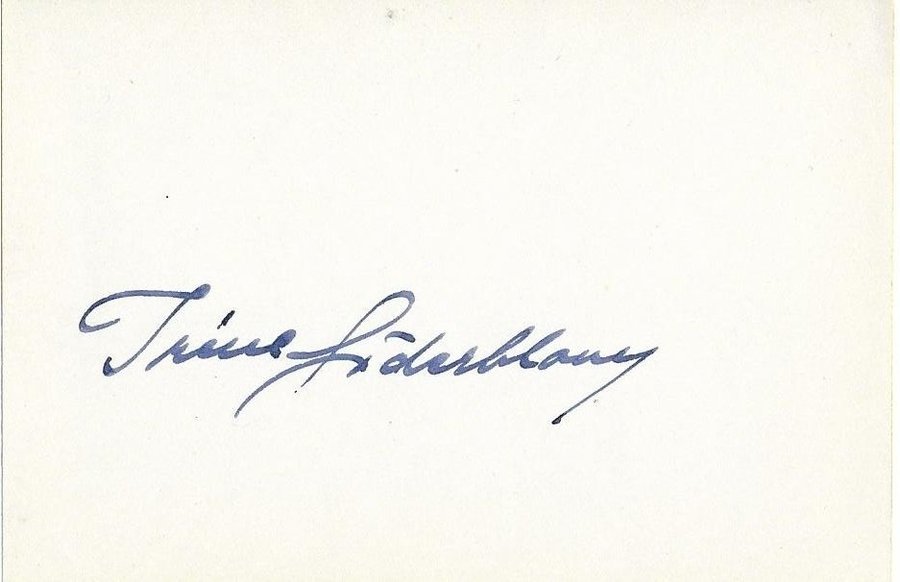 Irene Söderblom